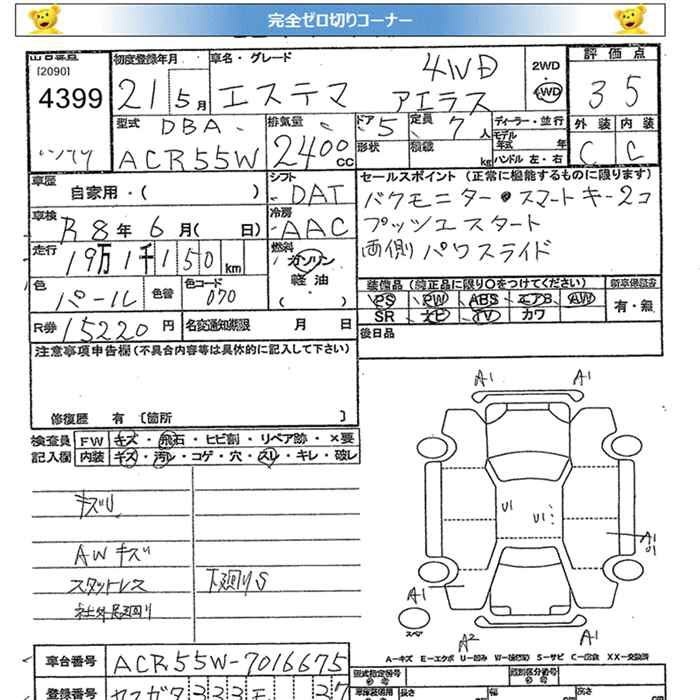 完全ゼロ切りコーナー
[2090]
4399
初度登録年月
21 5月
車名・グレード
エスティマ アエラス 4WD
2WD
4WD
評価点
3 5
外装 内装
C C
型式
DBA-
ACR55W
排気量
2400cc
ドア 5
定員 7人
形状
積載 kg
ディーラー・並行
モデル年式 年
ハンドル 左・右
車歴
自家用・( )
シフト
DAT
セールスポイント (正常に機能するものに限ります)
バクモニター・スマートキー2コ
プッシュスタート
両側パワスライド
車検
R8年6月( 日)
冷房
AAC
走行
19万1千150km
燃料
ガソリン
軽油
・( )
色
パール
色替
色コード
070
装備品 (純正品に限り○をつけてください)
PS PW ABS エアB AW
SR ナビ TV カワ
新車保証書
有・無
R券 15220円
名変通知期限 月 日
後日品
注意事項申告欄(不具合内容等は具体的に記入して下さい)
修復歴 有 [箇所 ]
検査員記入欄
FW キズ・飛石・ヒビ割・リペア跡・×要
内装 キズ・汚レ・コゲ・穴・スレ・キレ・破レ
キズリ
AWキズ
スタットレス
下廻りS
A1 A1
U1 U1
A1
A1
スペア
A2 A1
A-キズ E-エクボ U-凹み W-波(修理) S-サビ C-腐食 XX-交換済
車台番号
ACR55W-7016675
登録番号
ヤマガタ 333
型式指定番号
類別区分番号
長さ 幅 高さ